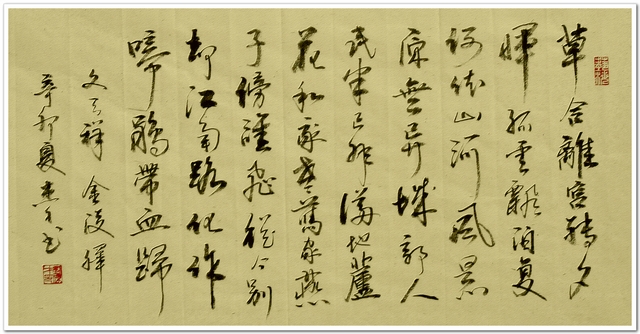 草合離宮轉夕
暉孤雲飄泊复
何依山河風景
原無異城郭人
民半已非滿地蘆
花和我老舊家燕
子傍誰飛從今別
却江南路化作
啼鵑帶血歸
文天祥 金陵驛
辛卯夏 书